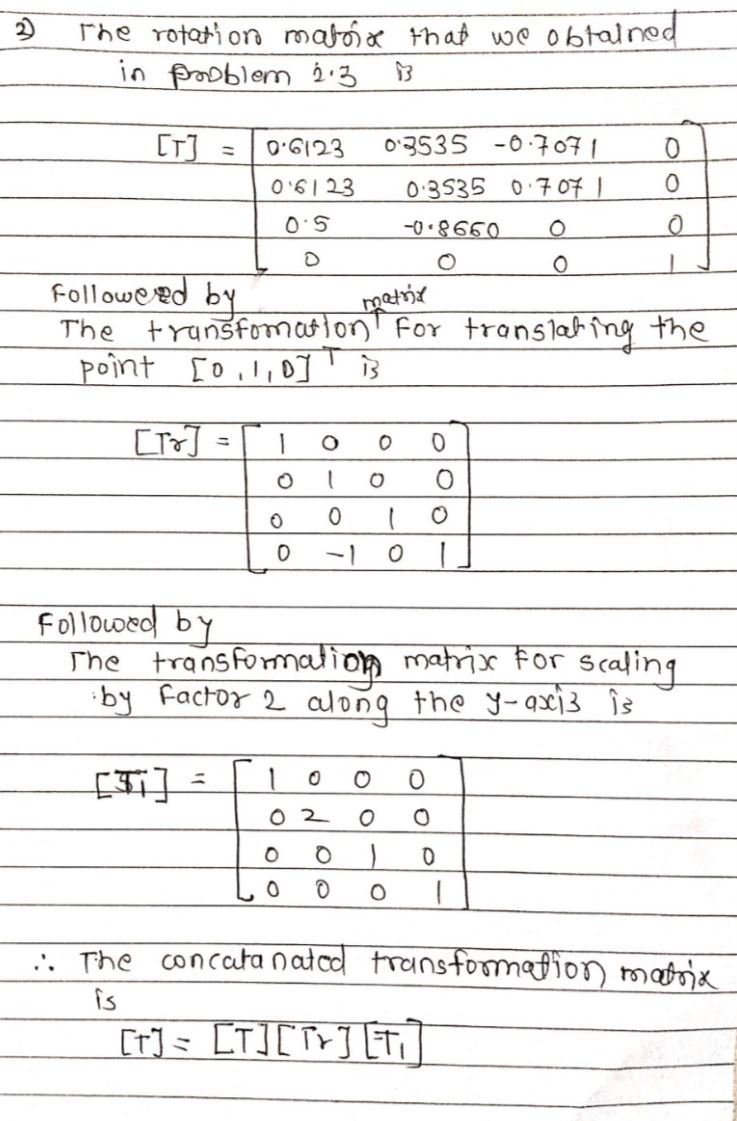 2) The rotation matrix that we obtained
in problem 2.3 is
[T] = [ 0.6123 0.3535 -0.7071 0
0.6123 0.3535 0.7071 0
0.5 -0.8660 0 0
0 0 0 1 ]
Followed by
The transfomation matrix For translating the
point [0,1,0]ᵀ is
[Tr] = [ 1 0 0 0
0 1 0 0
0 0 1 0
0 -1 0 1 ]
Followed by
The transformation matrix For scaling
by factor 2 along the y-axis is
[T₁] = [ 1 0 0 0
0 2 0 0
0 0 1 0
0 0 0 1 ]
∴ The concatanated transformation matrix
is
[T] = [T] [Tr] [T₁]